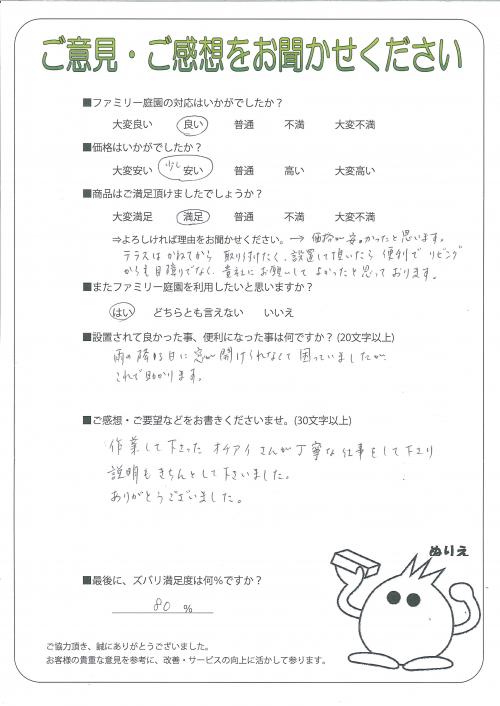 ご意見・ご感想をお聞かせください
■ファミリー庭園の対応はいかがでしたか？
大変良い 良い 普通 不満 大変不満
■価格はいかがでしたか？
大変安い 少し安い 普通 高い 大変高い
■商品はご満足頂けましたでしょうか？
大変満足 満足 普通 不満 大変不満
⇒よろしければ理由をお聞かせください。→ 価格が安かったと思います。
テラスはかねてから取り付けたく、設置して頂いたら便利でリビング
からも目障りでなく、貴社にお願いしてよかったと思っております。
■またファミリー庭園を利用したいと思いますか？
はい どちらとも言えない いいえ
■設置されて良かった事、便利になった事は何ですか？(20文字以上)
雨の降る日に窓が開けられなくて困っていましたが
これで助かります。
■ご感想・ご要望などをお書きくださいませ。(30文字以上)
作業して下さったオチアイさんが丁寧な仕事をして下さり
説明もきちんとして下さいました。
ありがとうございました。
ぬりえ
■最後に、ズバリ満足度は何%ですか？
80 %
ご協力頂き、誠にありがとうございました。
お客様の貴重な意見を参考に、改善・サービスの向上に活かして参ります。